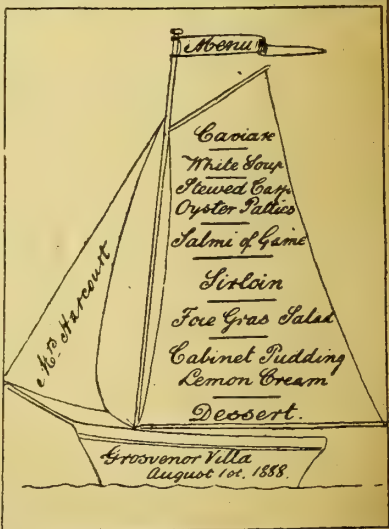 Menu
Caviare
White Soup
Stewed Carp
Oyster Patties
Salmi of Game
Sirloin
Foie Gras Salad
Cabinet Pudding
Lemon Cream
Dessert.
Mrs Harcourt
Grosvenor Villa
August 1st, 1888.